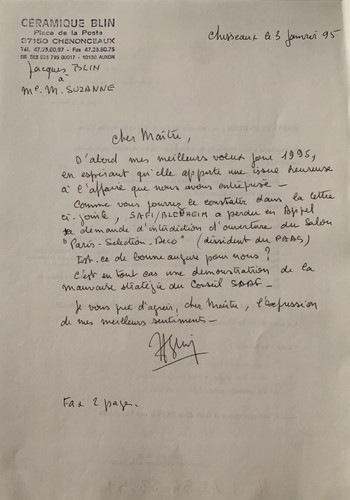 CERAMIQUE BLIN
Place de la Poste
37150 CHENONCEAUX
Tél. 47.23.60.97 - Fax 47.23.60.75
Chisseaux le 3 janvier 95
Jacques BLIN
à
Me. M. SUZANNE
Cher Maître,
D'abord mes meilleurs voeux pour 1995,
en espérant qu'elle apporte une issue heureuse
à l'affaire que nous avons entreprise -
Comme vous pourrez le constater dans la lettre
ci-jointe, SAFI/BLENHEIM a perdu en Appel
sa demande d'interdiction d'ouverture du Salon
"Paris-Sélection-Déco" (dissident du PAAS)
Est-ce de bonne augure pour nous ?
C'est en tout cas une démonstration de la
mauvaise stratégie du Conseil SAAF -
Je vous prie d'agréer, cher Maître, l'expression
de mes meilleurs sentiments -
Fax 2 pages.